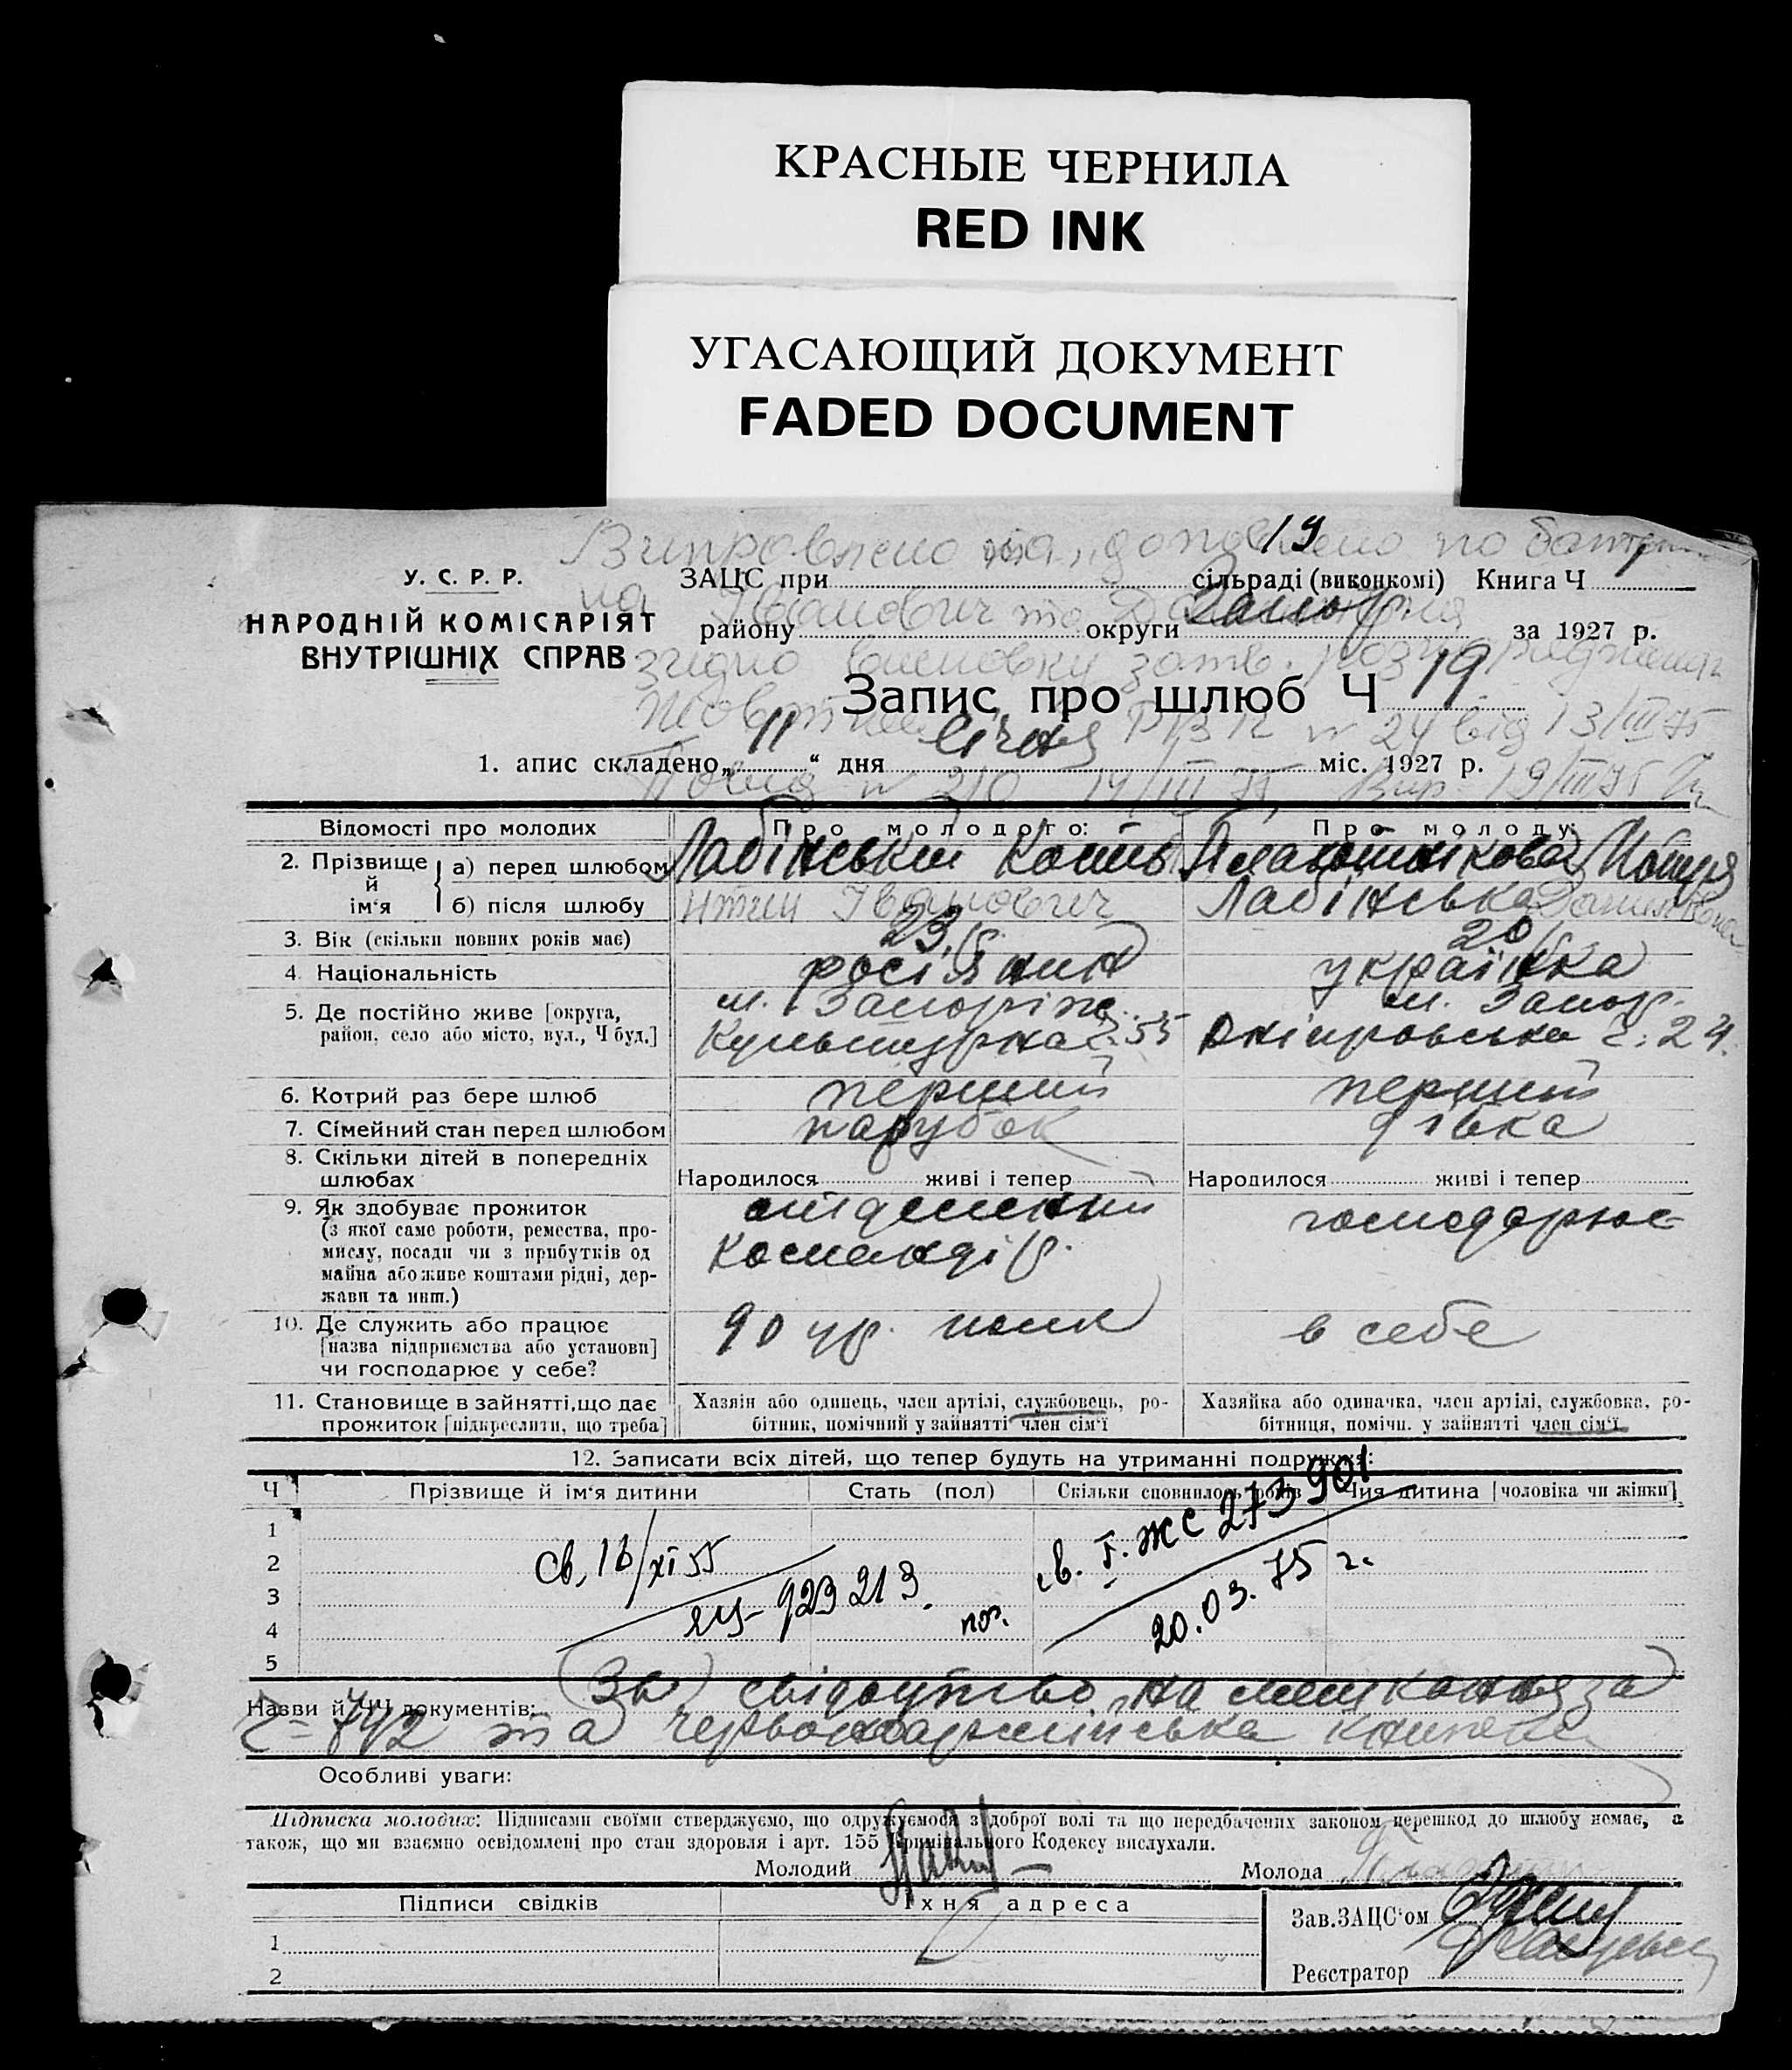 КРАСНЫЕ ЧЕРНИЛА
RED INK
УГАСАЮЩИЙ ДОКУМЕНТ
FADED DOCUMENT
Виправлено та доповнено по
19
У. С. Р. Р.
ЗАЦС при сільраді (виконкомі) Книга Ч
на Іванович та
НАРОДНІЙ КОМІСАРІЯТ
ВНУТРІШНІХ СПРАВ
району округи Запор. за 1927 р.
згідно висновку затв.
Запис про шлюб Ч 19
№ 24 від 13/III 75
1. апис складено „11“ дня січня міс. 1927 р.
№ 210 14/III 75 19/III 75
Відомості про молодих
Про молодого:
Про молоду:
2. Прізвище й ім'я
а) перед шлюбом
Лабінський
б) після шлюбу
Іванович
Лабінська
3. Вік (скільки повних років має)
23 р.
20 р.
4. Національність
росіянин
українка
5. Де постійно живе [округа, район, село або місто, вул., Ч буд.]
м. Запоріж.
Культурна ч. 55
м. Запор.
Дніпровська ч. 24.
6. Котрий раз бере шлюб
перший
перший
7. Сімейний стан перед шлюбом
парубок
дівка
8. Скільки дітей в попередніх шлюбах
Народилося живі і тепер
Народилося живі і тепер
9. Як здобуває прожиток
(з якої саме роботи, ремества, про-
мислу, посади чи з прибутків од
майна або живе коштами рідні, дер-
жави та инш.)
командір.
господарює
10. Де служить або працює
[назва підприємства або установи]
чи господарює у себе?
90 ур. полк
в себе
11. Становище в зайнятті, що дає
прожиток [підкреслити, що треба]
Хазяїн або одинець, член артілі, службовець, ро-
бітник, помічний у зайнятті член сім'ї
Хазяйка або одиначка, член артілі, службовка, ро-
бітниця, помічн. у зайнятті член сім'ї
12. Записати всіх дітей, що тепер будуть на утриманні подружжя:
Ч
Прізвище й ім'я дитини
Стать (пол)
Скільки сповнилось років
Чия дитина [чоловіка чи жінки]
1
2
3
4
5
св. 16/XI 55
923213.
пов.
св. I. ЖС 273901
20.03.75 г.
Назви й ЧЧ документів: свідоцтво на мешкання за
ч= 742 та червоноармійська книжка
Особливі уваги:
Підписка молодих: Підписами своїми стверджуємо, що одружуємося з доброї волі та що передбачених законом перешкод до шлюбу немає, а
також, що ми взаємно освідомлені про стан здоровля і арт. 155 Кримінального Кодексу вислухали.
Молодий
Молода
Підписи свідків
Їхня адреса
Зав. ЗАЦС'ом
1
2
Реєстратор